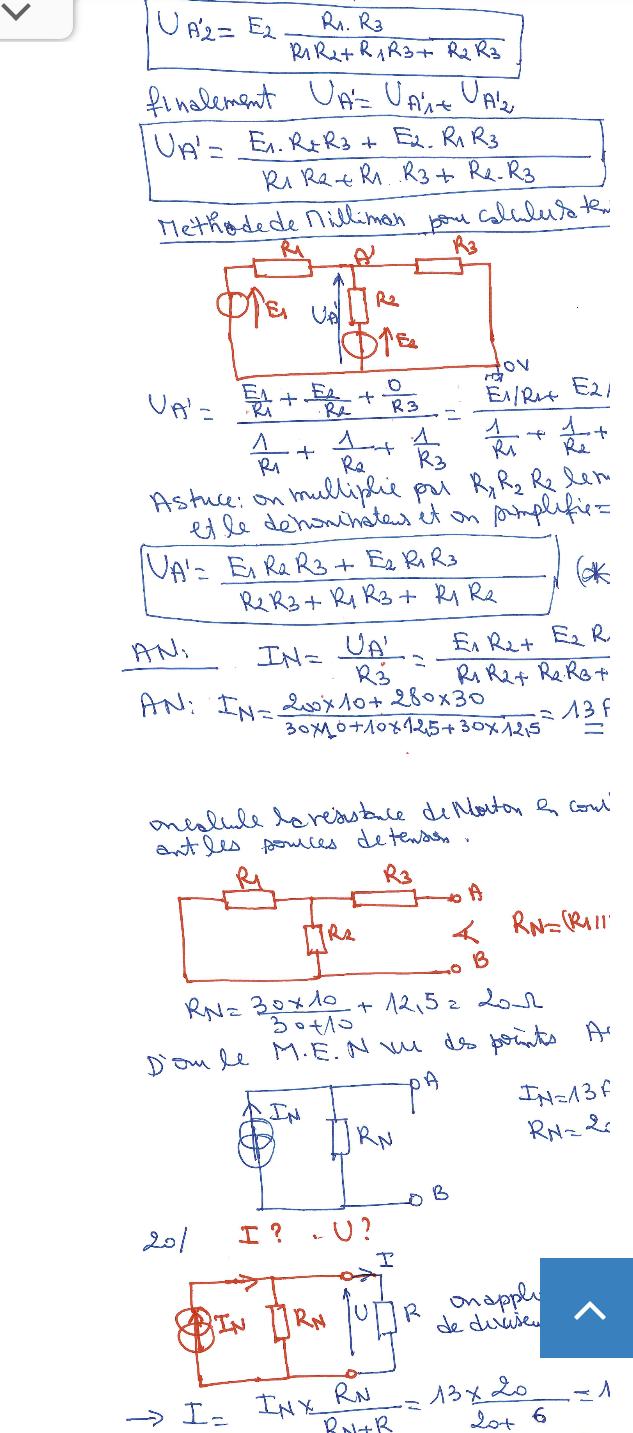 U A'2 = E2 R1. R3 / R1R2 + R1R3 + R2R3
finalement UA' = UA'1 + UA'2
UA' = E1. R2 R3 + E2. R1 R3 / R1 R2 + R1. R3 + R2. R3
Méthode de Millman pour calculer
R1 A' R3
E1 UA' R2
E2
0V
UA' = E1/R1 + E2/R2 + 0/R3 / 1/R1 + 1/R2 + 1/R3 = E1/R1 + E2/ / 1/R1 + 1/R2 +
Astuce: on multiplie par R1 R2 R2 le
et le dénominateur et on simplifie =
UA' = E1 R2 R3 + E2 R1 R3 / R2 R3 + R1 R3 + R1 R2
AN: IN = UA'/R3 = E1 R2 + E2 R / R1 R2 + R2.R3 +
AN: IN = 200x10 + 280x30 / 30x10 + 10x12,5 + 30x12,5 = 13
on calcule la résistance de Norton en
ant les sources de tension.
R1 R3 A
R2 RN = (R1 //
B
RN = 30x10 / 30+10 + 12,5 = 20Ω
D'où le M.E.N vu des points A
A
IN RN IN = 13
RN = 2
B
20/ I? . U?
I
IN RN U R on appli
de diviseu
→ I = IN x RN / RN+R = 13 x 20 / 20+ 6 = 1